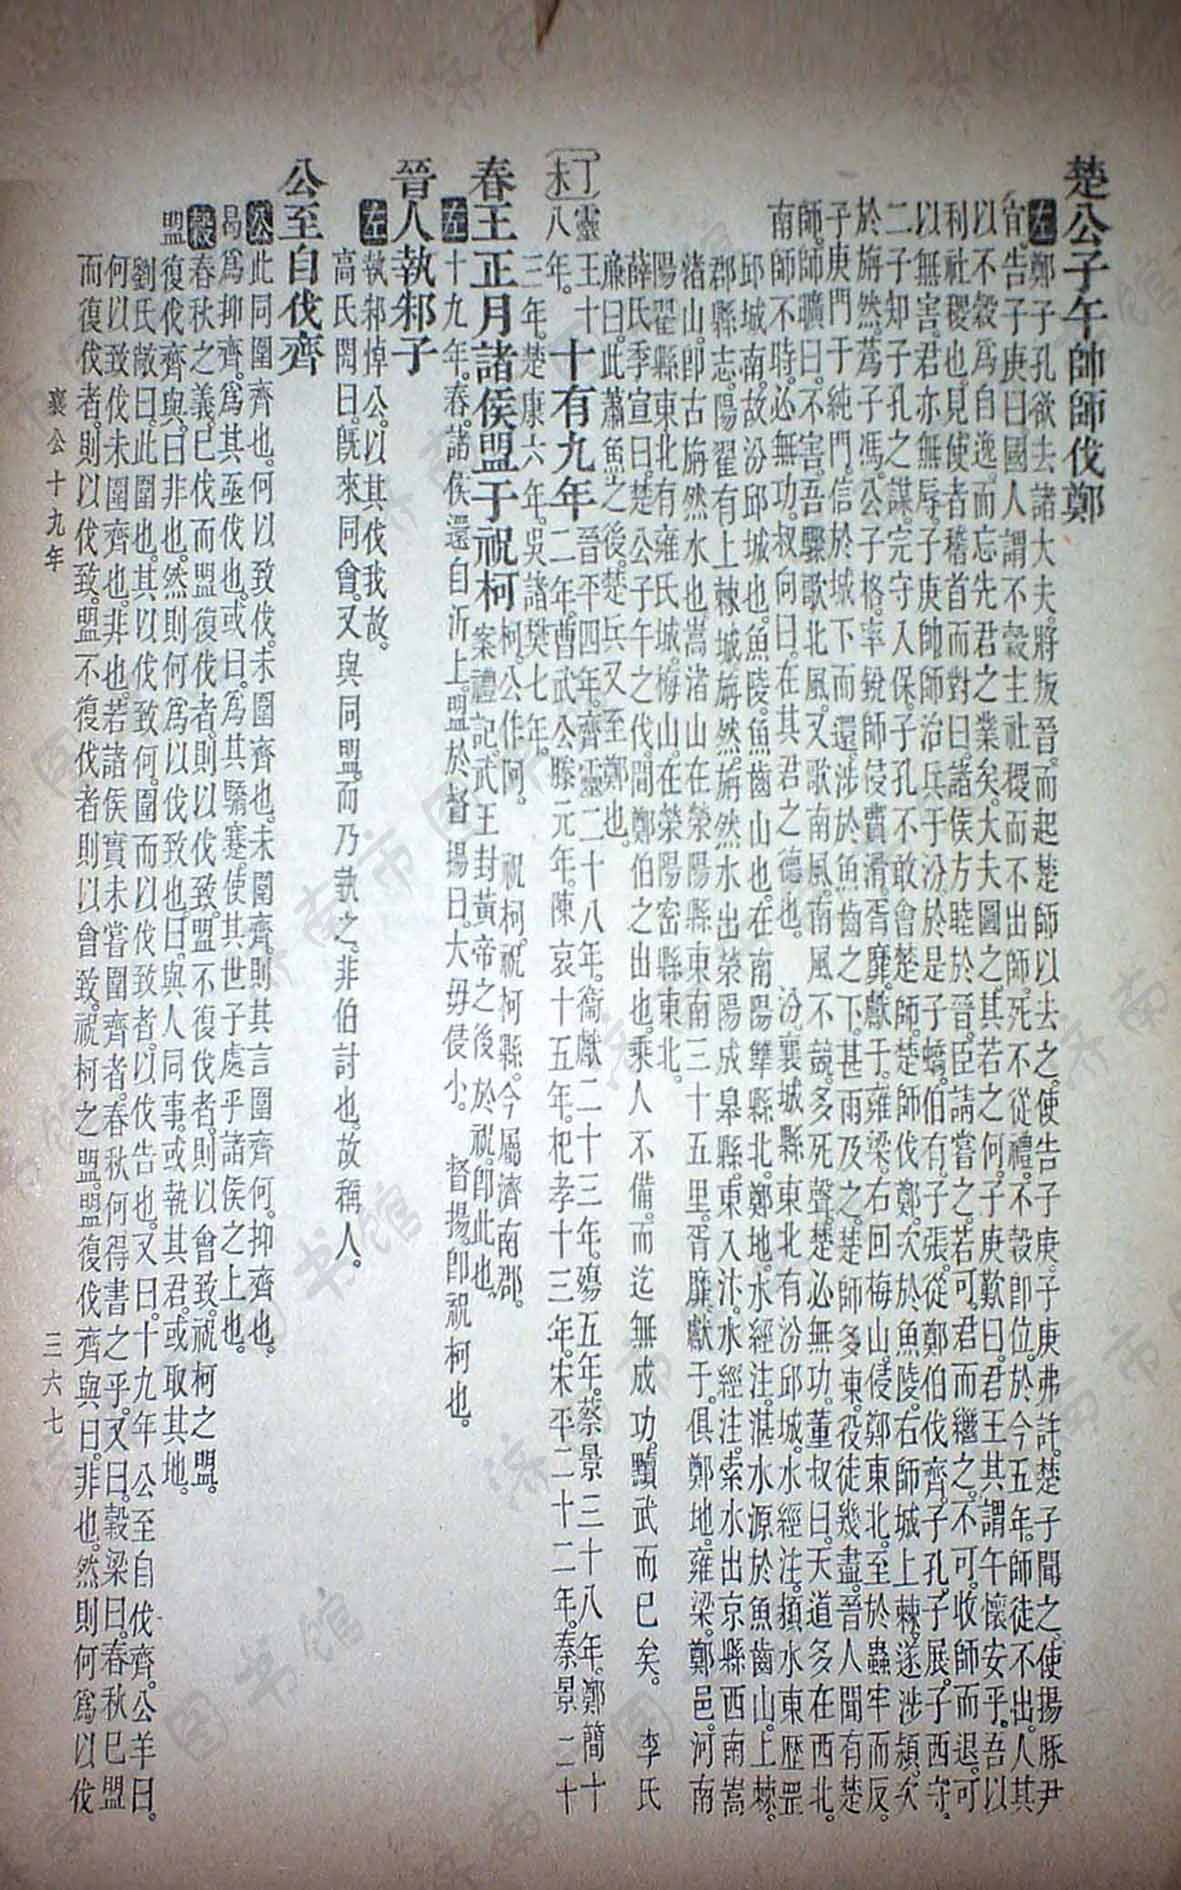 楚公子午帥師伐鄭
左鄭子孔欲去諸大夫。將叛晉。而起楚師以去之。使告子庚。子庚弗許。楚子聞之。使揚豚尹
宜。告子庚曰。國人謂不穀主社稷而不出師。死不從禮。不穀即位。於今五年。師徒不出。人其
以不穀爲自逸。而忘先君之業矣。大夫圖之。其若之何。子庚歎曰。君王其謂午懷安乎。吾以
利社稷也。見使者稽首而對曰。諸侯方睦於晉。臣請嘗之。若可。君而繼之。不可。收師而退。可
以無害。君亦無辱。子庚帥師治兵于汾。於是子蟜。伯有。子張。從鄭伯伐齊。子孔。子展。子西守。
二子知子孔之謀。完守入保。子孔不敢會楚師。楚師伐鄭。次於魚陵。右師城上棘。遂涉潁。次
於旃然。蔿子馮。公子格。率銳師侵費滑。胥靡。獻于。雍梁。右回梅山。侵鄭東北。至於蟲牢而反。
子庚門于純門。信於城下而還。涉於魚齒之下。甚雨及之。楚師多凍。役徒幾盡。晉人聞有楚
師。師曠曰。不害。吾驟歌北風。又歌南風。南風不競。多死聲。楚必無功。董叔曰。天道多在西北。
南師不時。必無功。叔向曰。在其君之德也。 汾。襄城縣東北有汾邱城。水經注。潁水東歷罡
邱城南。故汾邱城也。魚陵。魚齒山也。在南陽犨縣北。鄭地。水經注。湛水源於魚齒山。上棘。
郡縣志。陽翟有上棘城。旃然。旃然水出滎陽成皋縣。東入汴。水經注。索水出京縣西南嵩
渚山。即古旃然水也。嵩渚山在滎陽縣東南三十五里。胥靡。獻于。俱鄭地。雍梁。鄭邑。河南
陽翟縣東北有雍氏城。梅山。在滎陽密縣東北。
薛氏季宣曰。楚公子午之伐。間鄭伯之出也。乘人不備。而迄無成功。黷武而已矣。 李氏
廉曰。此蕭魚之後。楚兵又至鄭也。
〔丁未〕靈王十八年。 十有九年 晉平四年。齊靈二十八年。衞獻二十三年。殤五年。蔡景三十八年。鄭簡十
三年。楚康六年。吳諸樊七年。二年。曹武公滕元年。陳哀十五年。杞孝十三年。宋平二十二年。秦景二十
春王正月諸侯盟于祝柯 柯。公作阿。 祝柯。祝柯縣。今屬濟南郡。
案禮記。武王封黃帝之後於祝。即此也。
左十九年。春。諸侯還自沂上。盟於督揚。曰。大毋侵小。 督揚。即祝柯也。
晉人執邾子
左執邾悼公。以其伐我故。
高氏閌曰。旣來同會。又與同盟。而乃執之。非伯討也。故稱人。
公至自伐齊
公此同圍齊也。何以致伐。未圍齊也。未圍齊。則其言圍齊何。抑齊也。
曷爲抑齊。爲其亟伐也。或曰。爲其驕蹇。使其世子處乎諸侯之上也。
穀春秋之義。已伐而盟復伐者。則以伐致。盟不復伐者。則以會致。祝柯之盟。
盟復伐齊與。曰。非也。然則何爲以伐致也。曰。與人同事。或執其君。或取其地。
劉氏敞曰。此圍也。其以伐致何。圍而以伐致者。以伐告也。又曰。十九年。公至自伐齊。公羊曰。
何以致伐。未圍齊也。非也。若諸侯實未嘗圍齊者。春秋何得書之乎。又曰。穀梁曰。春秋已盟
而復伐者。則以伐致。盟不復伐者則以會致。祝柯之盟。盟復伐齊與。曰。非也。然則何爲以伐
襄公十九年
三六七